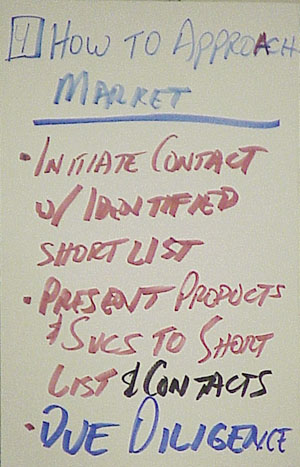 4 HOW TO APPROACH
MARKET
• INITIATE CONTACT
w/ IDENTIFIED
SHORT LIST
• PRESENT PRODUCTS
& SVCS TO SHORT
LIST & CONTACTS
• DUE DILIGENCE